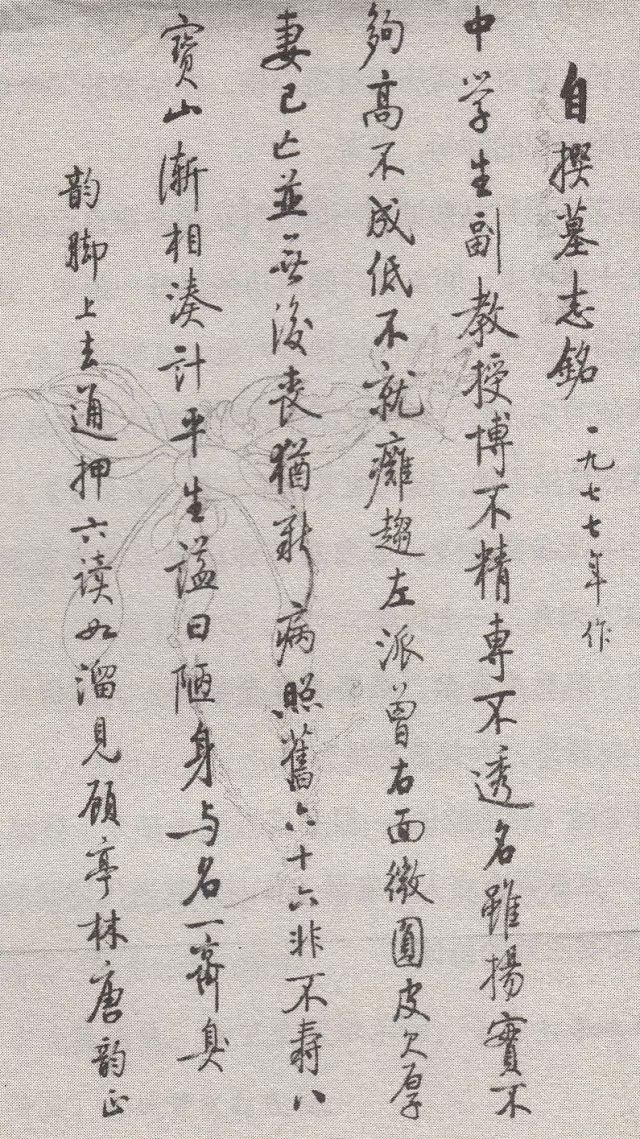 自撰墓志銘 一九七七年作
中学生副教授博不精專不透名雖揚實不
夠高不成低不就癱趨左派曾右面微圓皮欠厚
妻已亡並無後喪猶新病照舊六十六非不壽八
寳山漸相湊計平生謚曰陋身与名一齊臭
韵脚上去通押六读如溜見顾亭林唐韵正